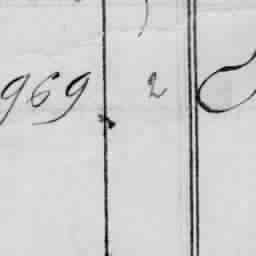 969 2